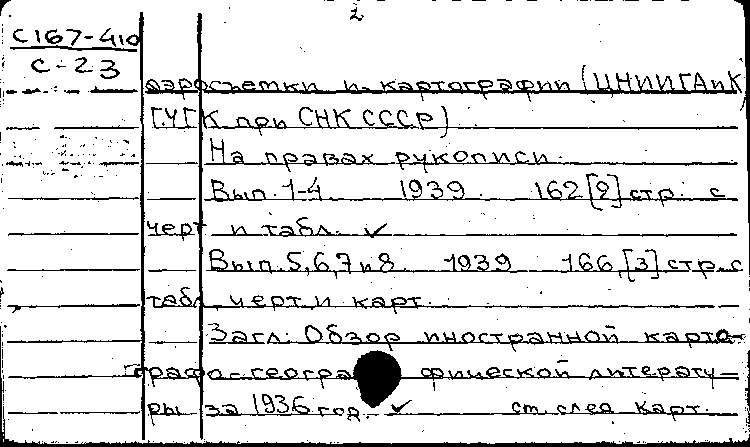 2
С167-410
С-23
аэросъемки и картографии (ЦНИИГАиК
ГУГК при СНК СССР)
На правах рукописи.
Вып. 1-4 1939. 162 [2] стр. с
черт и табл. ✓
Вып. 5,6,7 и 8 1939 166, [3] стр. с
табл, черт, и карт.
Загл: Обзор иностранной карто-
графо-геогра фической литерату-
ры за 1936 год. ✓ см. след карт.